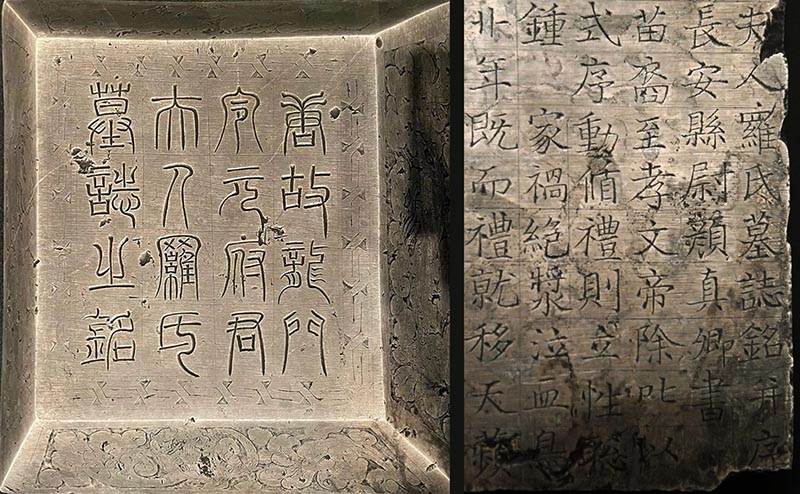 唐故龍門
令元府君
夫人羅氏
墓誌之銘
夫人羅氏墓誌銘并序
長安縣尉顏真卿書
苗裔至孝文帝除叱以
式序動循禮則立性聰
鍾 家禍絕漿泣血
丱年既而禮就移天蘋